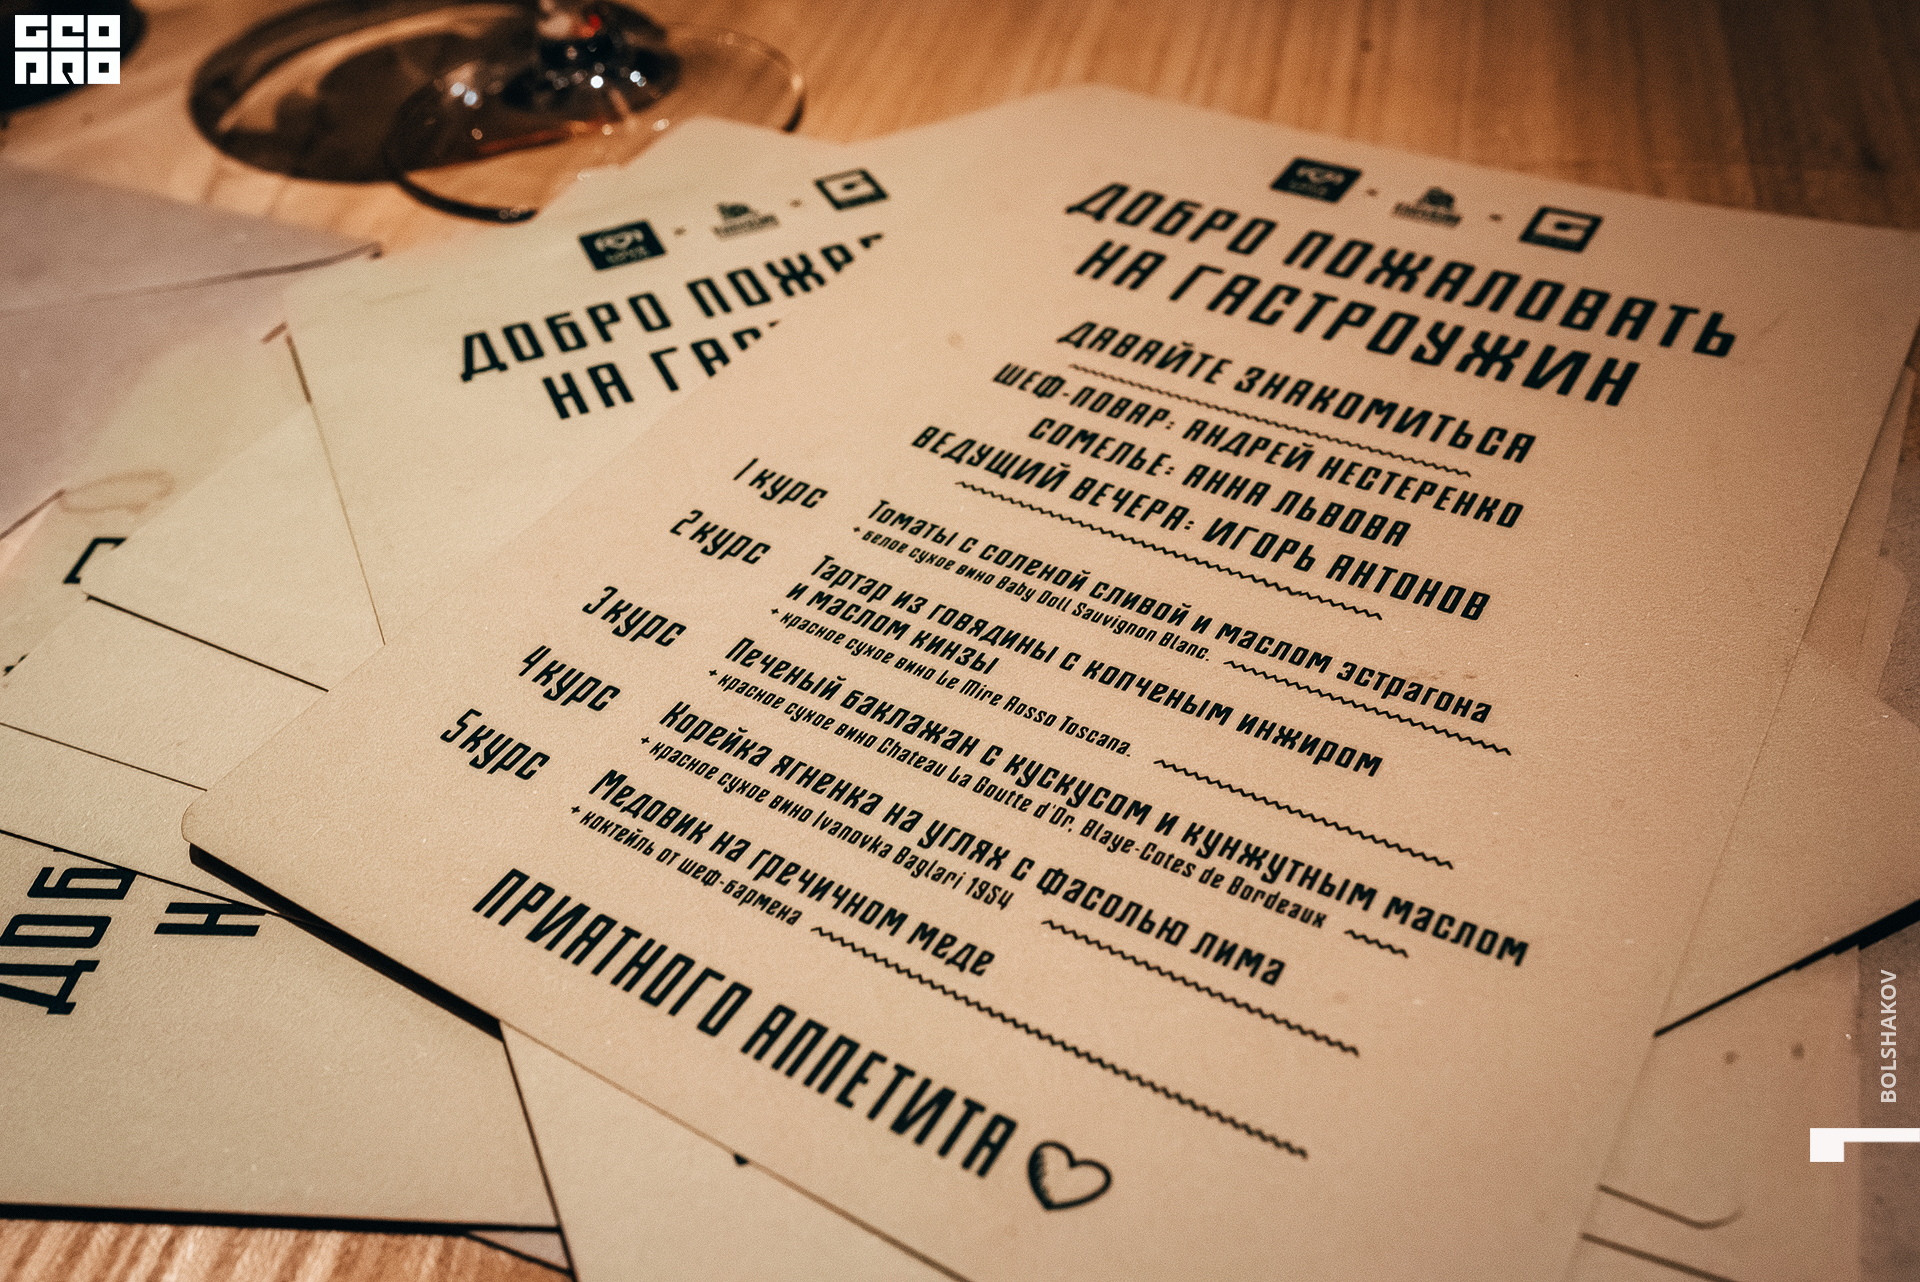 GEO
PRO
ДОБРО ПОЖАЛОВАТЬ
НА ГАСТРОУЖИН
ДАВАЙТЕ ЗНАКОМИТЬСЯ
ШЕФ-ПОВАР: АНДРЕЙ НЕСТЕРЕНКО
СОМЕЛЬЕ: АННА ЛЬВОВА
ВЕДУЩИЙ ВЕЧЕРА: ИГОРЬ АНТОНОВ
1 курс
Томаты с соленой сливой и маслом эстрагона
+ белое сухое вино Baby Doll Sauvignon Blanc.
2 курс
Тартар из говядины с копченым инжиром
и маслом кинзы
+ красное сухое вино Le Mire Rosso Toscana.
3 курс
Печеный баклажан с кускусом и кунжутным маслом
+ красное сухое вино Chateau La Goutte d'Or. Blaye-Cotes de Bordeaux
4 курс
Корейка ягненка на углях с фасолью лима
+ красное сухое вино Ivanovka Baglari 1954
5 курс
Медовик на гречичном меде
+ коктейль от шеф-бармена
ПРИЯТНОГО АППЕТИТА
ДОБРО ПОЖА
НА ГАС
ДОБ
Н
BOLSHAKOV